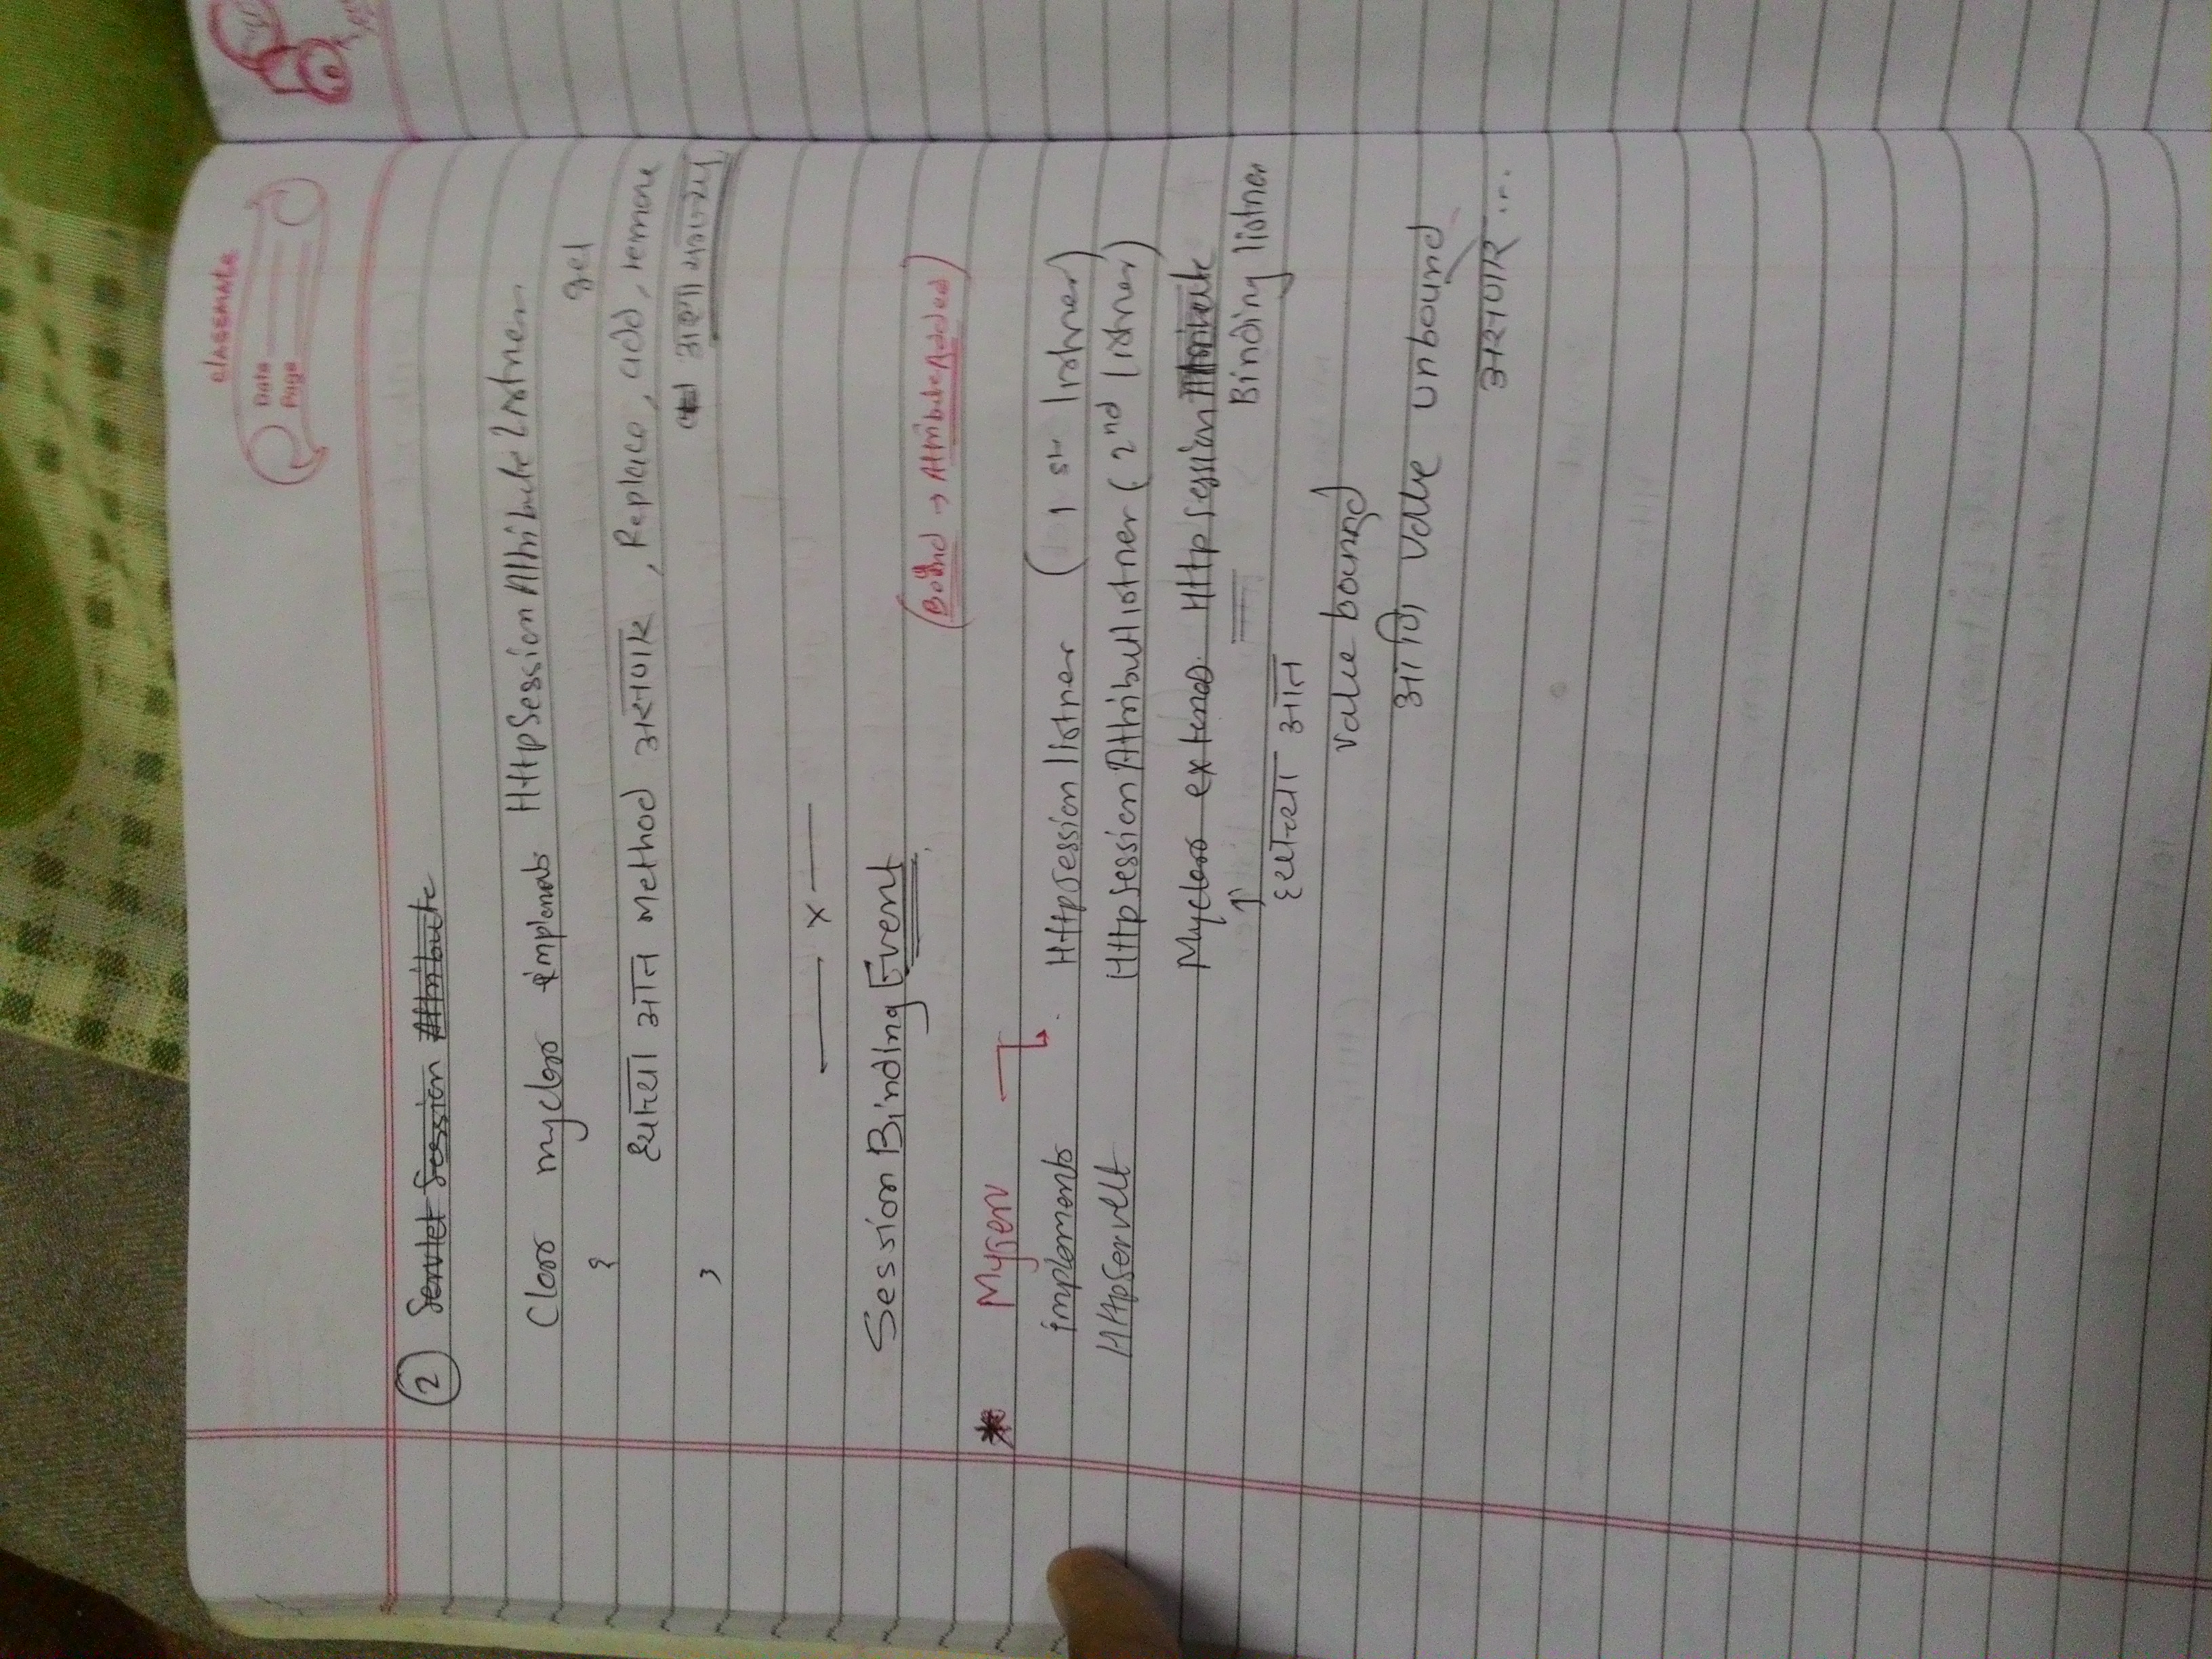 classmate
Date
Page
② Servlet Session Attribute
Class myclass implements HttpSessionAttributeListner
{
ह्याच्या आत Method असणार, Replace, add, remove
}
— x —
Session Binding Event
(Bound → AttributeAdded)
* Myser
implements HttpSession listner (1 st listner)
Httpservelt HttpSessionAttributListner (2nd listner)
Myclass extends HttpSession
Binding listner
ह्याच्या आत
value bound
आणि value unbound
असणार...